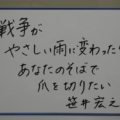 戦争が
やさしい雨に変わったら
あなたのそばで
爪を切りたい
笹井宏之